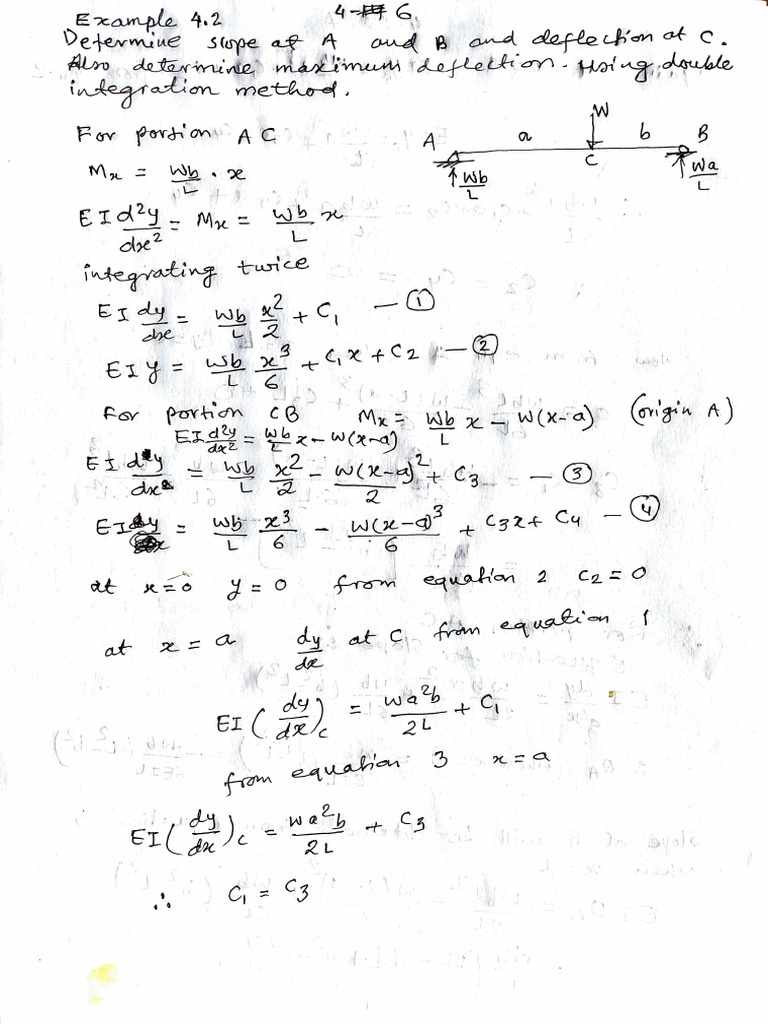 4-6.
Example 4.2
Determine slope at A and B and deflection at C.
Also determine maximum deflection. Using double
integration method.
For portion AC
A a W b B
C
Wb/L Wa/L
Mx = Wb/L · x
EI d²y/dx² = Mx = Wb/L x
integrating twice
EI dy/dx = Wb/L x²/2 + C₁ — ①
EI y = Wb/L x³/6 + C₁x + C₂ — ②
For portion CB Mx = Wb/L x - W(x-a) (origin A)
EI d²y/dx² = Wb/L x - W(x-a)
EI dy/dx = Wb/L x²/2 - W(x-a)²/2 + C₃ — ③
EI y = Wb/L x³/6 - W(x-a)³/6 + C₃x + C₄ — ④
at x=0 y=0 from equation 2 C₂=0
at x=a dy/dx at C from equation 1
EI (dy/dx)c = Wa²b/2L + C₁
from equation 3 x=a
EI (dy/dx)c = Wa²b/2L + C₃
∴ C₁ = C₃